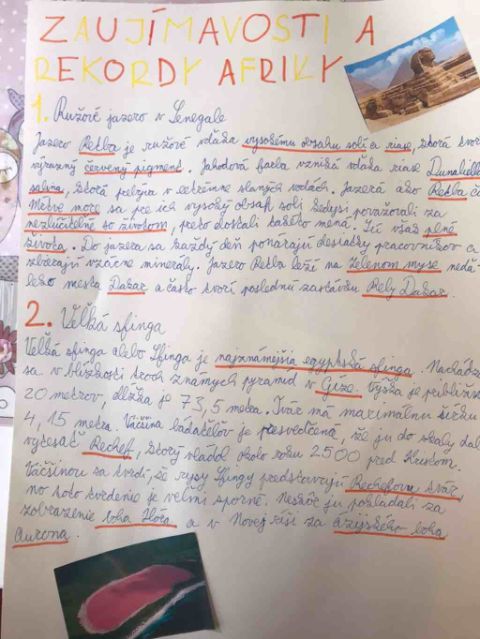 ZAUJÍMAVOSTI A
REKORDY AFRIKY
1. Ružové jazero v Senegale
Jazero Retba je ružové vďaka vysokému obsahu soli a rias, ktorá tvorí
výrazný červený pigment. Jahodová farba vzniká vďaka riase Dunaliella
salina, ktorá prežíva v extrémne slaných vodách. Jazerá ako Retba či
Mŕtve more sa pre ich vysoký obsah soli kedysi považovali za
nezlučiteľné so životom, preto dostali takéto mená. Sú však plné
života. Do jazera sa každý deň ponárajú desiatky pracovníkov a
zbierajú vzácne minerály. Jazero Retba leží na Zelenom myse neďa-
leko mesta Dakar a často tvorí poslednú zastávku Rely Dakar.
2. Veľká sfinga
Veľká sfinga alebo Sfinga je najznámejšia egyptská sfinga. Nachádza
sa v blízkosti troch známych pyramíd v Gíze. Výška je približne
20 metrov, dĺžka je 73,5 metra. Tvár má maximálnu šírku
4,15 metra. Väčšina bádateľov je presvedčená, že ju do skaly dal
vytesať Rachef, ktorý vládol okolo roku 2500 pred Kristom.
Väčšinou sa tvrdí, že rysy Sfingy predstavujú Rachefovu tvár,
no toto tvrdenie je veľmi sporné. Neskôr ju pokladali za
zobrazenie boha Hóra a v Novej ríši za ázijského boha
Aurona.